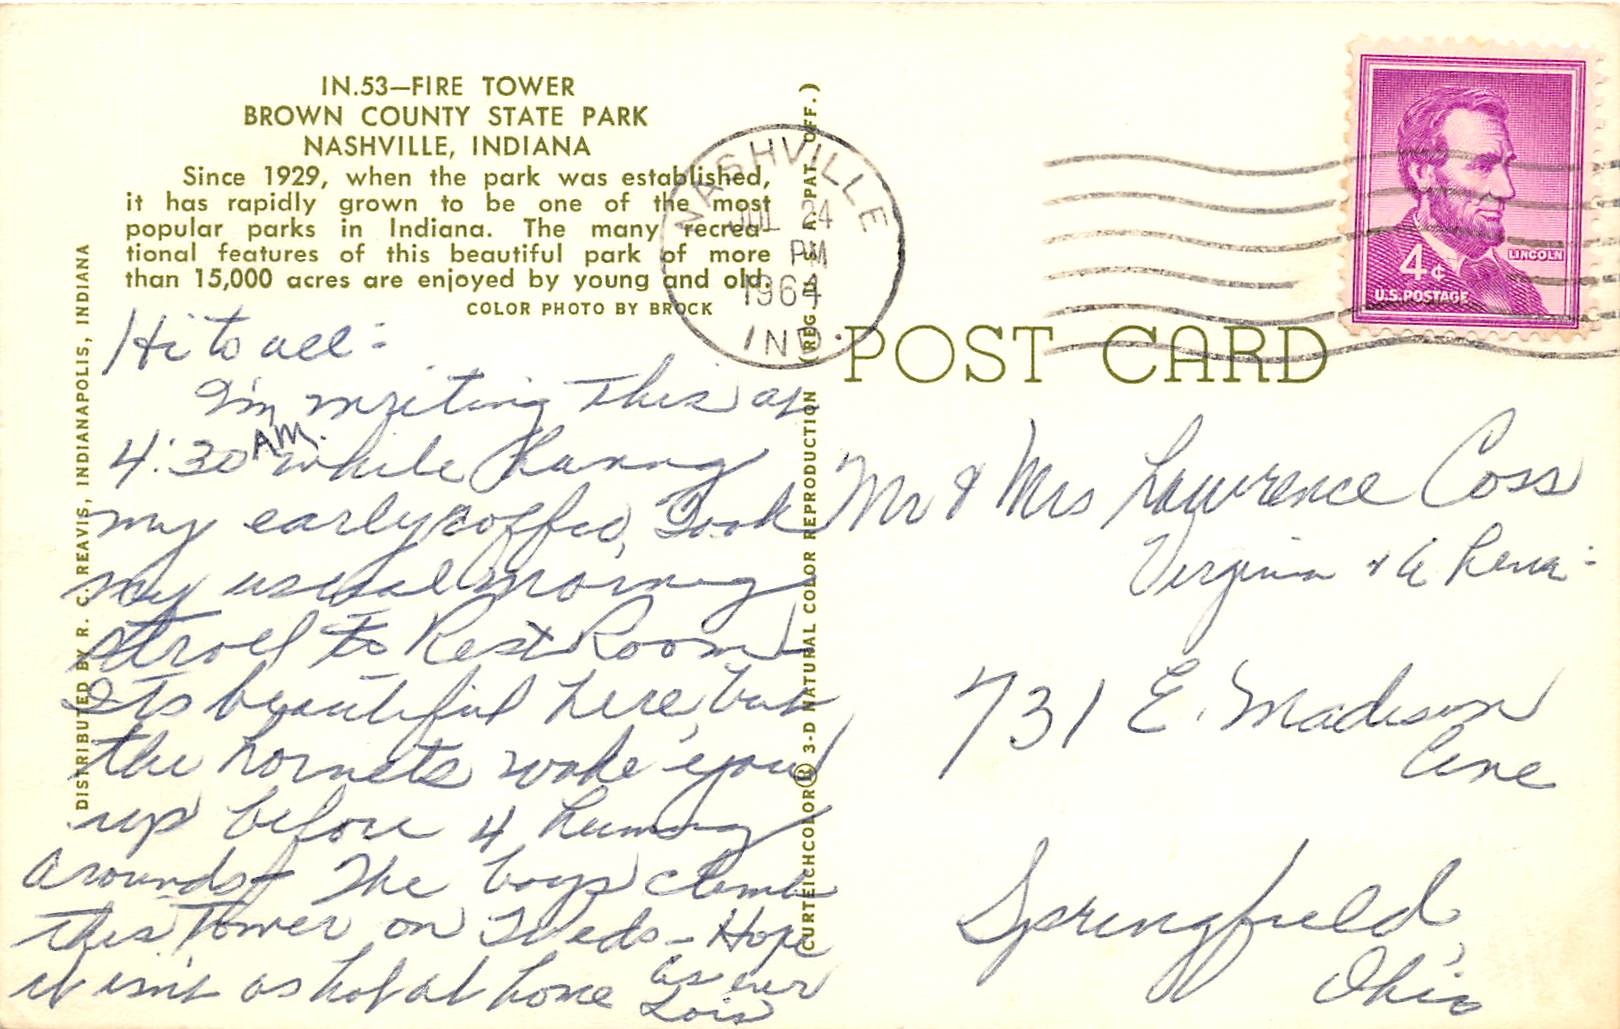 IN.53—FIRE TOWER
BROWN COUNTY STATE PARK
NASHVILLE, INDIANA
Since 1929, when the park was established,
it has rapidly grown to be one of the most
popular parks in Indiana. The many recrea
tional features of this beautiful park of more
than 15,000 acres are enjoyed by young and old.
COLOR PHOTO BY BROCK
DISTRIBUTED BY R. C. REAVIS, INDIANAPOLIS, INDIANA
Hi to all:
I'm writing this at
4:30 AM. while having
my early coffee, Took
my usual morning
stroll to Rest Room
Its beautiful here, but
the hornets wake you
up before 4 humming
around. The boys climb
this Tower on Weds - Hope
it isn't as hot at home
as ever
Lois
CURTEICHCOLOR® 3-D NATURAL COLOR REPRODUCTION (REG. U.S.A. PAT. OFF.)
NASHVILLE
JUL 24
PM
1964
IND.
LINCOLN
4¢
U.S. POSTAGE
POST CARD
Mr & Mrs Lawrence Coss
Virginia &
731 E. Madison
Ave
Springfield,
Ohio